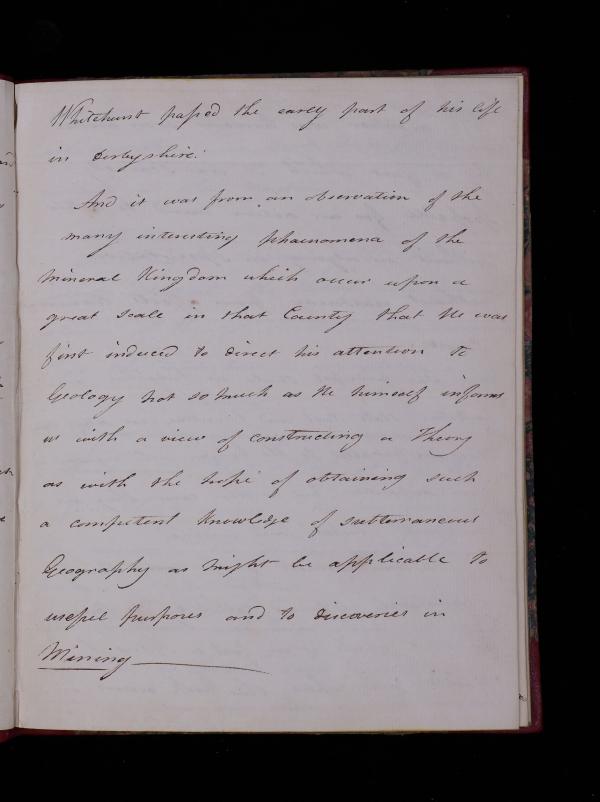 Whitehurst passed the early part of his life
in Derbyshire.
And it was from an observation of the
many interesting phaenomena of the
Mineral Kingdom which occur upon a
great scale in that County that He was
first induced to direct his attention to
Geology not so much as He himself informs
us with a view of constructing a Theory
as with the hope of obtaining such
a competent Knowledge of subterraneous
Geography as might be applicable to
useful purposes and to discoveries in
Mining